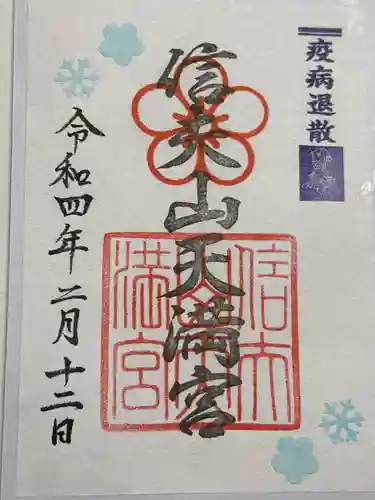 疫病退散
信夫山天満宮
信夫
満宮
令和四年二月十二日